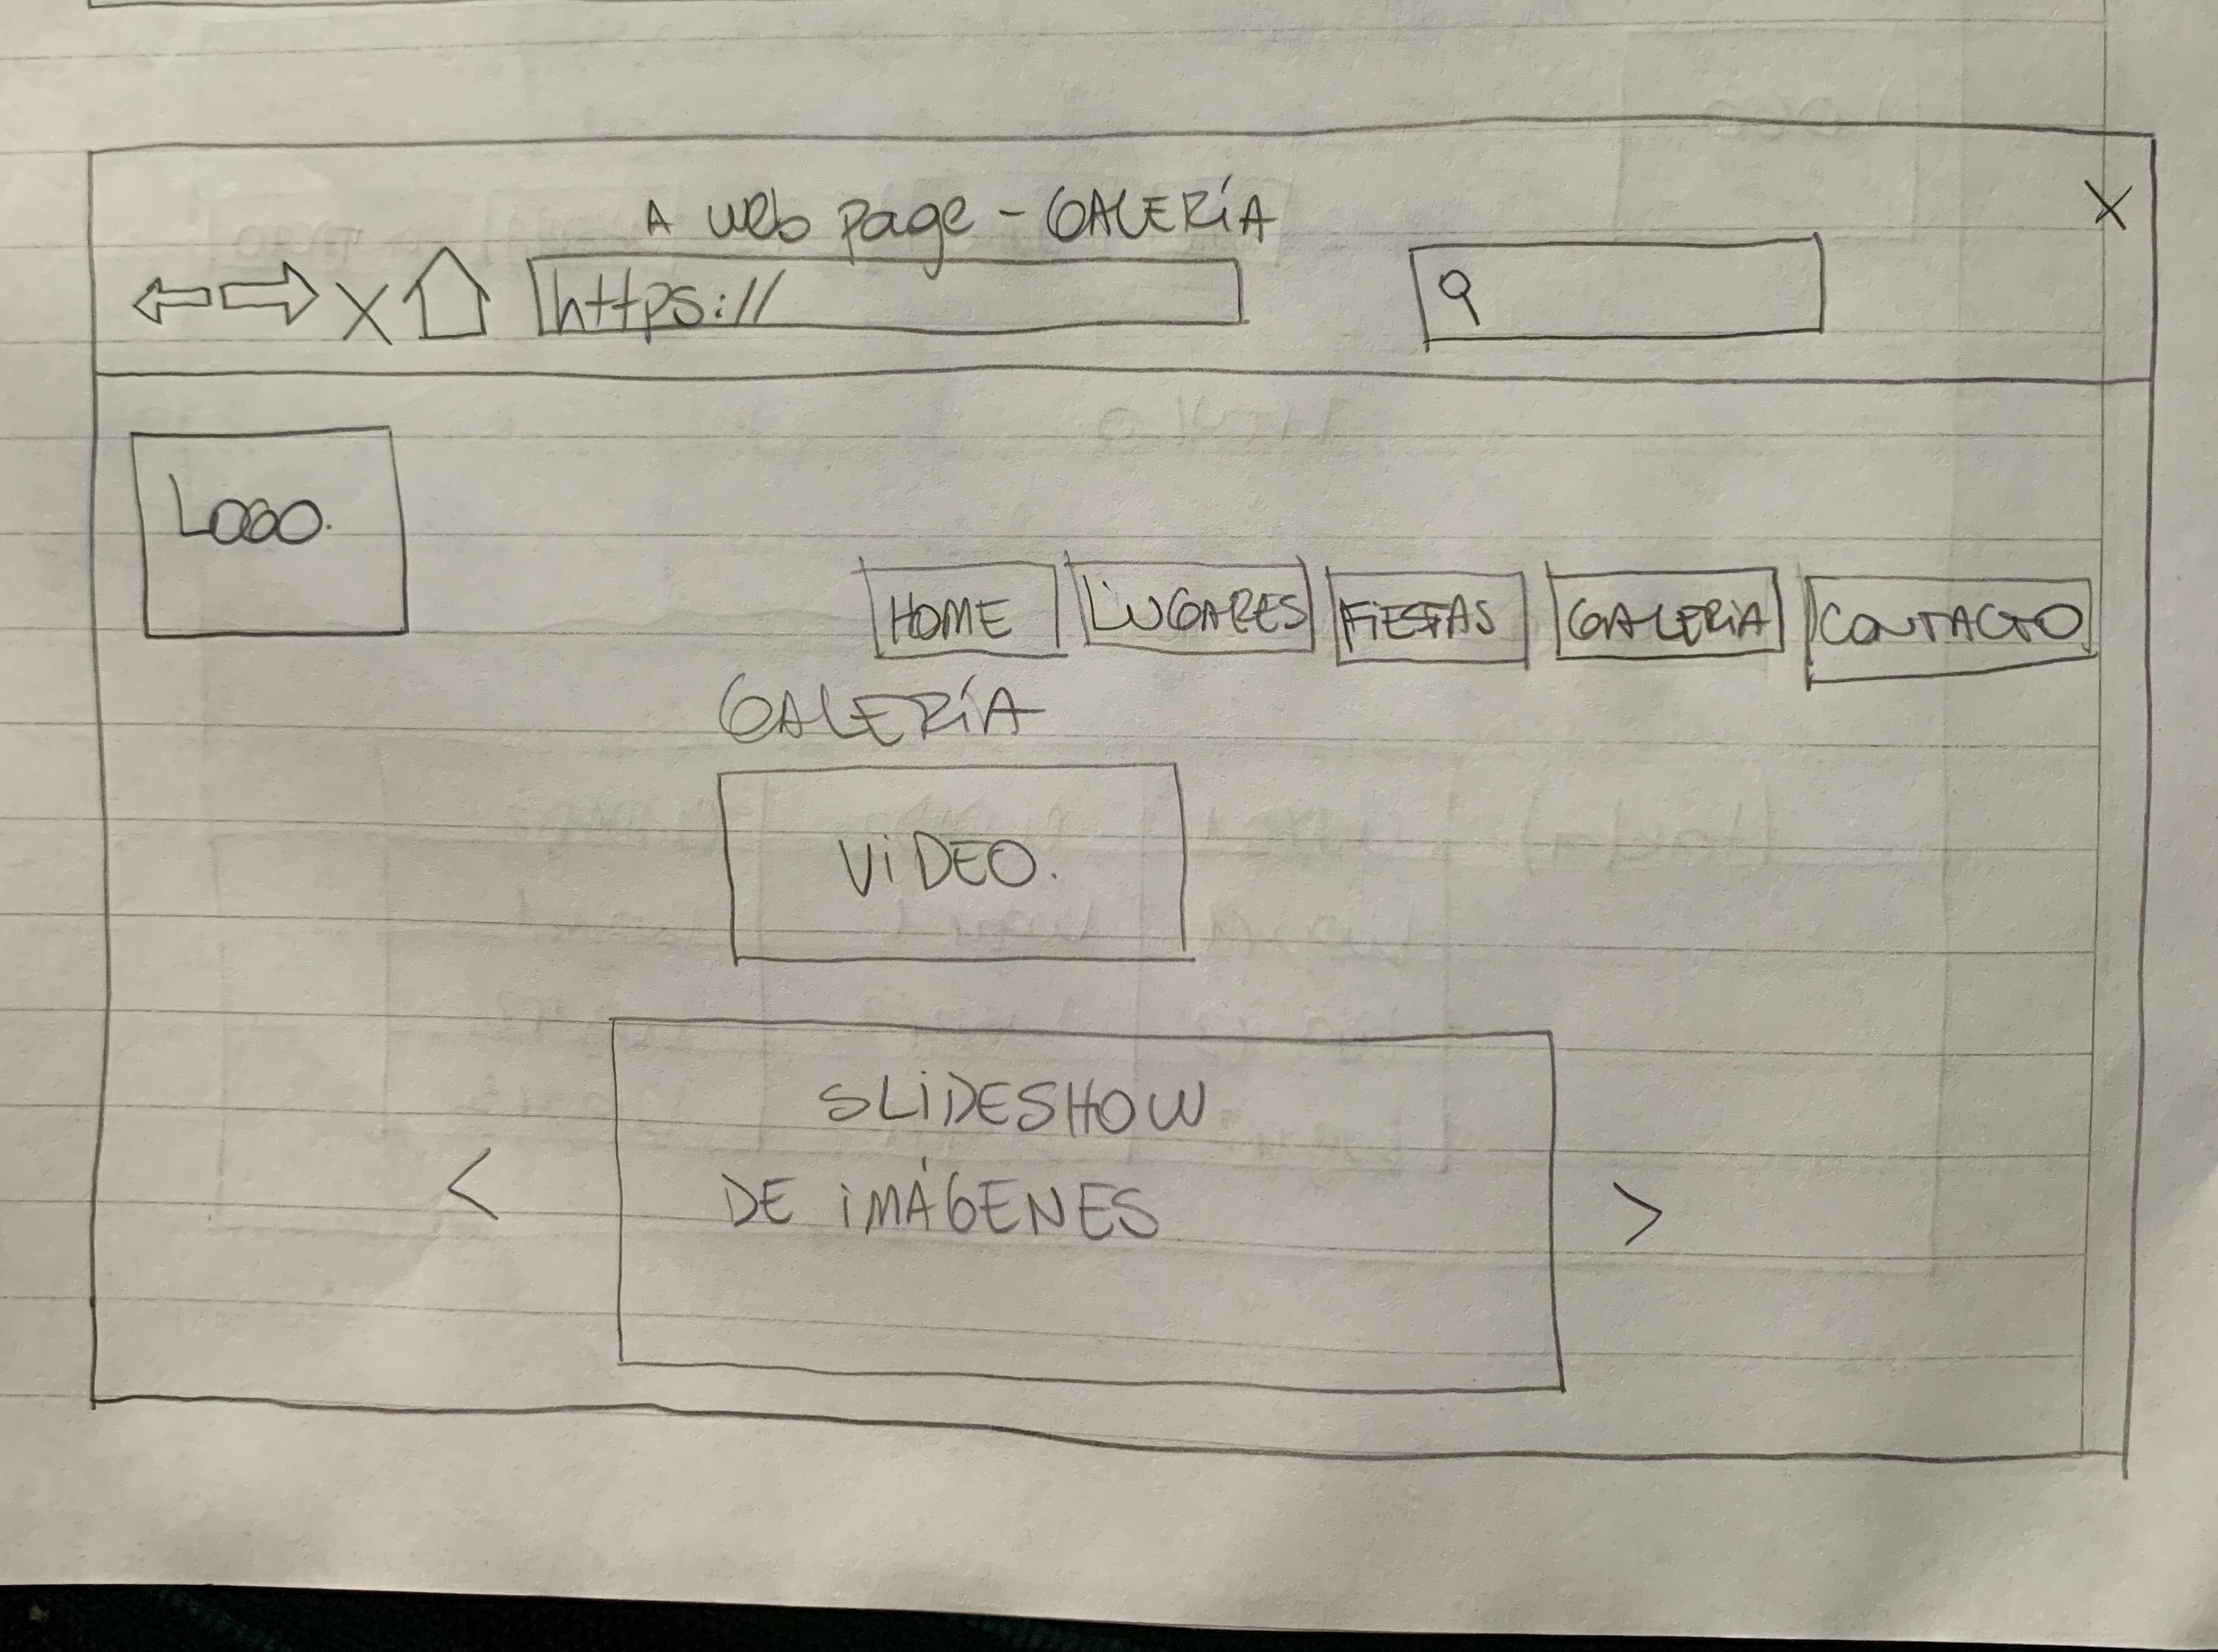 A web page - GALERÍA
X
X https://
LOGO.
HOME LUGARES FIESTAS GALERIA CONTACTO
GALERÍA
VIDEO.
SLIDESHOW
DE IMÁGENES
< >